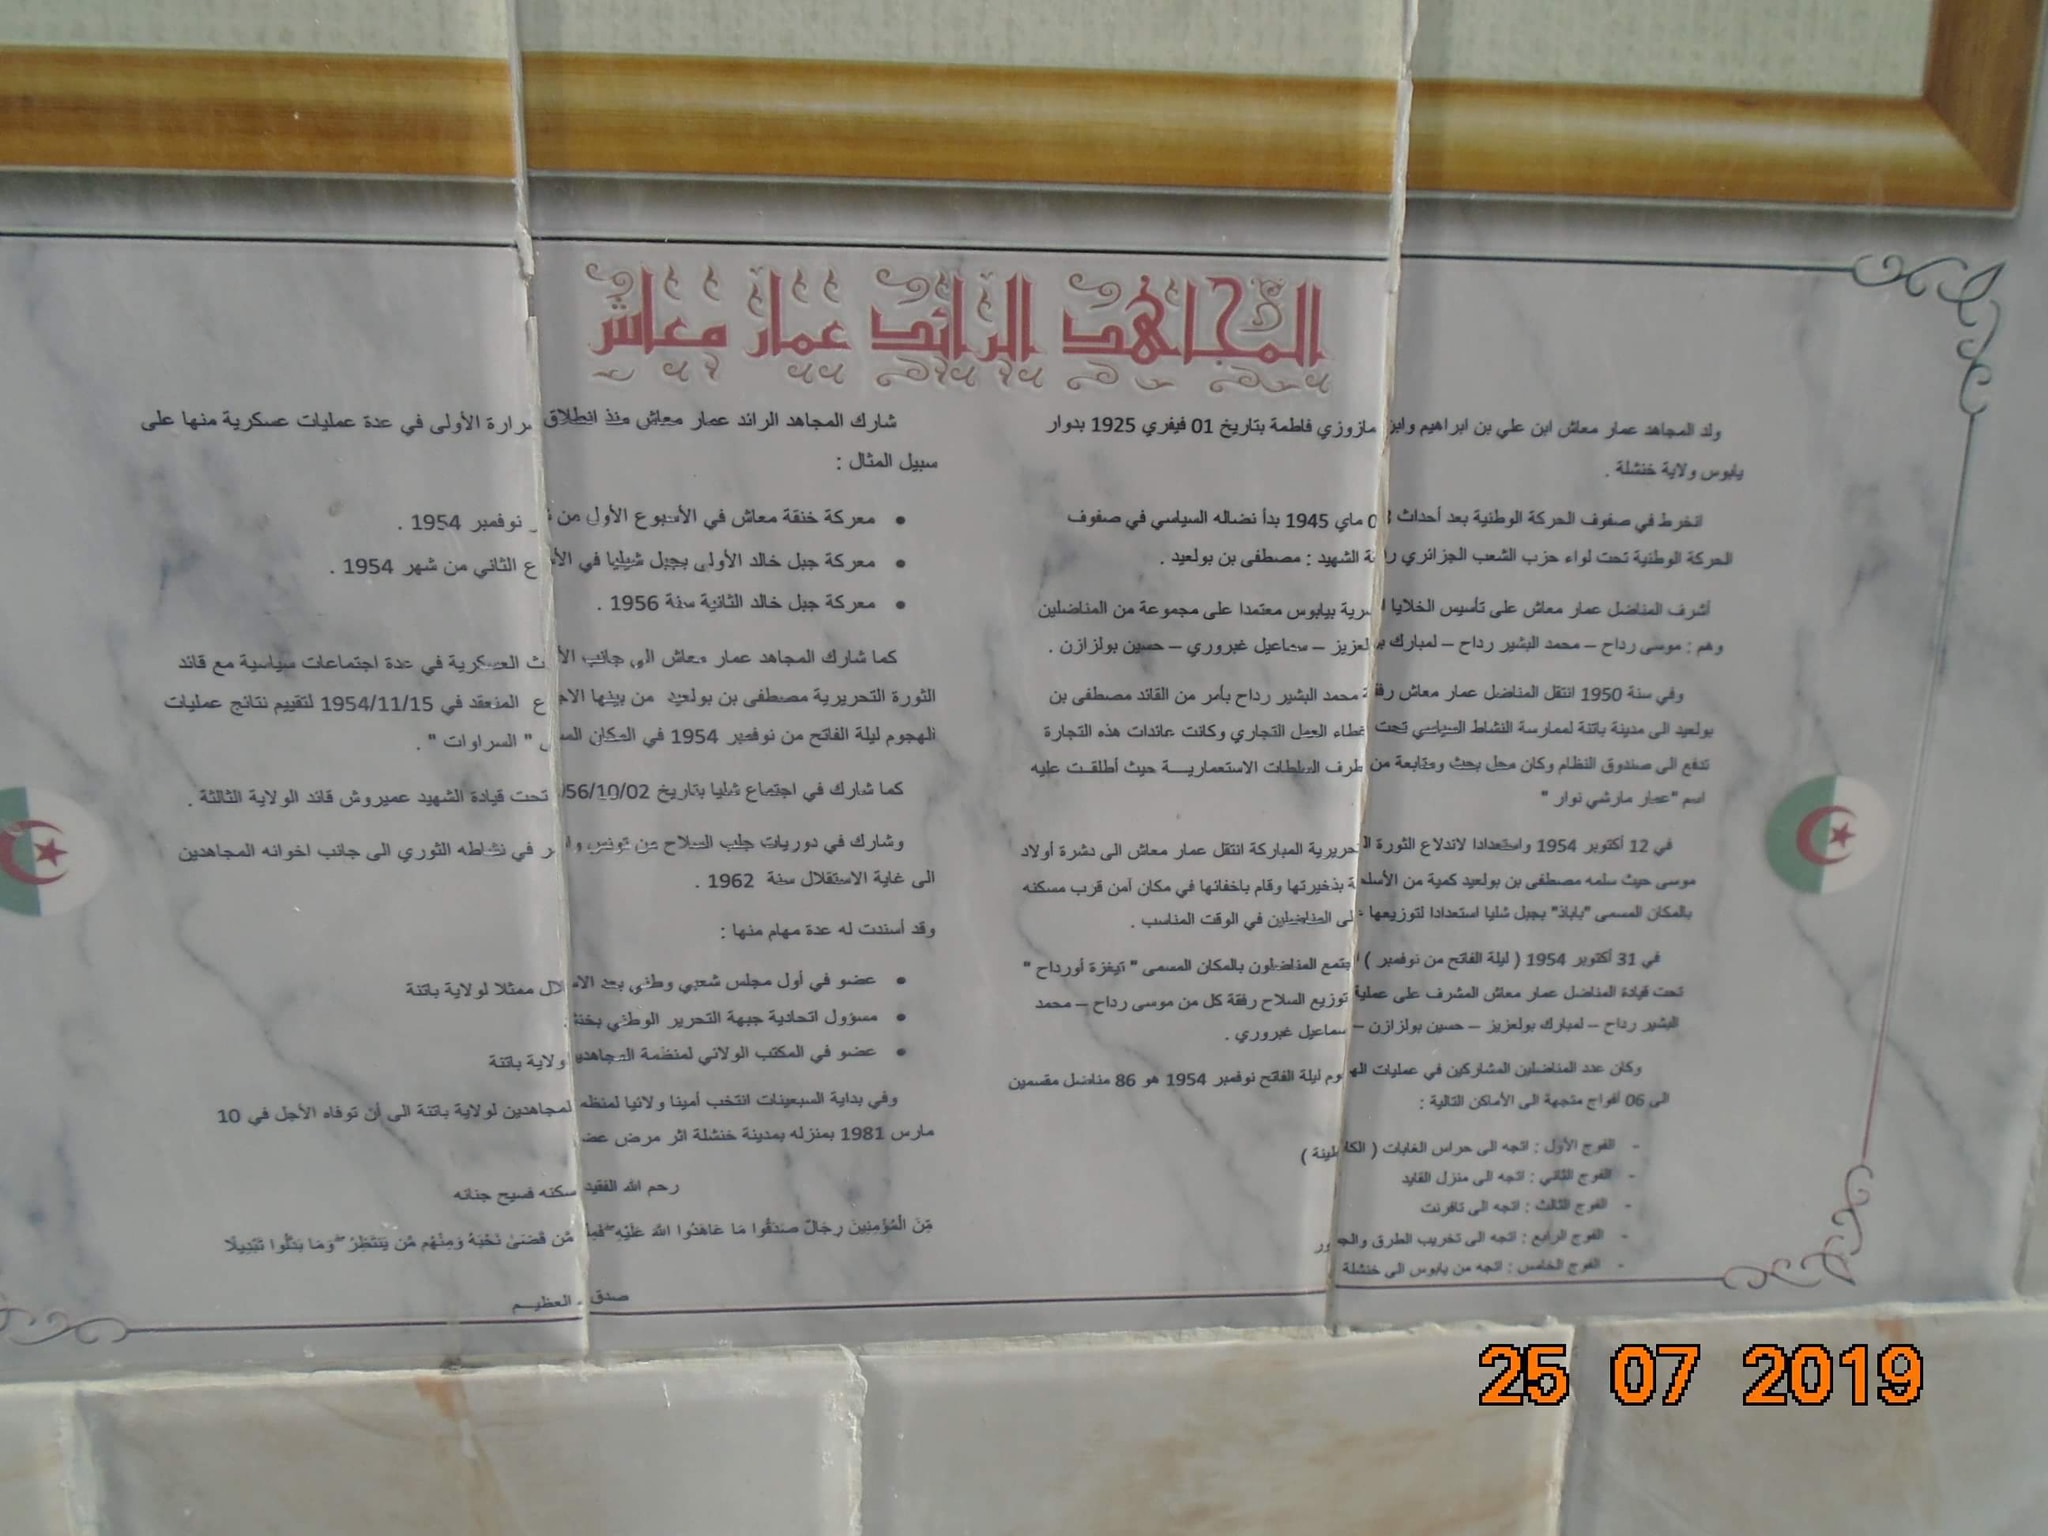 المجاهد الرائد عمار معاش
ولد المجاهد عمار معاش ابن علي بن ابراهيم وابن مازوزي فاطمة بتاريخ 01 فيفري 1925 بدوار
يابوس ولاية خنشلة .
انخرط في صفوف الحركة الوطنية بعد أحداث 08 ماي 1945 بدأ نضاله السياسي في صفوف
الحركة الوطنية تحت لواء حزب الشعب الجزائري رفقة الشهيد : مصطفى بن بولعيد .
أشرف المناضل عمار معاش على تأسيس الخلايا السرية بيابوس معتمدا على مجموعة من المناضلين
وهم : موسى رداح – محمد البشير رداح – لمبارك بولعزيز – سماعيل غبروري – حسين بولزازن .
وفي سنة 1950 انتقل المناضل عمار معاش رفقة محمد البشير رداح بأمر من القائد مصطفى بن
بولعيد الى مدينة باتنة لممارسة النشاط السياسي تحت غطاء العمل التجاري وكانت عائدات هذه التجارة
تدفع الى صندوق النظام وكان محل بحث ومتابعة من طرف السلطات الاستعمارية حيث أطلقت عليه
اسم "عمار مارشي نوار "
في 12 أكتوبر 1954 واستعدادا لاندلاع الثورة التحريرية المباركة انتقل عمار معاش الى دشرة أولاد
موسى حيث سلمه مصطفى بن بولعيد كمية من الأسلحة بذخيرتها وقام باخفائها في مكان آمن قرب مسكنه
بالمكان المسمى "باباذ" بجبل شليا استعدادا لتوزيعها على المناضلين في الوقت المناسب .
في 31 أكتوبر 1954 ( ليلة الفاتح من نوفمبر ) اجتمع المناضلون بالمكان المسمى " تيغزة أورداح "
تحت قيادة المناضل عمار معاش المشرف على عملية توزيع السلاح رفقة كل من موسى رداح – محمد
البشير رداح – لمبارك بولعزيز – حسين بولزازن – سماعيل غبروري .
وكان عدد المناضلين المشاركين في عمليات الهجوم ليلة الفاتح نوفمبر 1954 هو 86 مناضل مقسمين
الى 06 أفواج متجهة الى الأماكن التالية :
- الفوج الأول : اتجه الى حراس الغابات ( الكانطينة )
- الفوج الثاني : اتجه الى منزل القايد
- الفوج الثالث : اتجه الى تافرنت
- الفوج الرابع : اتجه الى تخريب الطرق والجسور
- الفوج الخامس : اتجه من يابوس الى خنشلة
شارك المجاهد الرائد عمار معاش منذ انطلاق الشرارة الأولى في عدة عمليات عسكرية منها على
سبيل المثال :
• معركة خنقة معاش في الأسبوع الأول من شهر نوفمبر 1954 .
• معركة جبل خالد الأولى بجبل شيليا في الأسبوع الثاني من شهر 1954 .
• معركة جبل خالد الثانية سنة 1956 .
كما شارك المجاهد عمار معاش الى جانب الأحداث العسكرية في عدة اجتماعات سياسية مع قائد
الثورة التحريرية مصطفى بن بولعيد من بينها الاجتماع المنعقد في 1954/11/15 لتقييم نتائج عمليات
الهجوم ليلة الفاتح من نوفمبر 1954 في المكان المسمى " السراوات " .
كما شارك في اجتماع شليا بتاريخ 1956/10/02 تحت قيادة الشهيد عميروش قائد الولاية الثالثة .
وشارك في دوريات جلب السلاح من تونس واستمر في نشاطه الثوري الى جانب اخوانه المجاهدين
الى غاية الاستقلال سنة 1962 .
وقد أسندت له عدة مهام منها :
• عضو في أول مجلس شعبي وطني بعد الاستقلال ممثلا لولاية باتنة
• مسؤول اتحادية جبهة التحرير الوطني بخنشلة
• عضو في المكتب الولائي لمنظمة المجاهدين ولاية باتنة
وفي بداية السبعينات انتخب أمينا ولائيا لمنظمة المجاهدين لولاية باتنة الى أن توفاه الأجل في 10
مارس 1981 بمنزله بمدينة خنشلة اثر مرض عضال
رحم الله الفقيد وأسكنه فسيح جنانه
مِّنَ الْمُؤْمِنِينَ رِجَالٌ صَدَقُوا مَا عَاهَدُوا اللَّهَ عَلَيْهِ ۖ فَمِنْهُم مَّن قَضَىٰ نَحْبَهُ وَمِنْهُم مَّن يَنتَظِرُ ۖ وَمَا بَدَّلُوا تَبْدِيلًا
صدق الله العظيم
25 07 2019